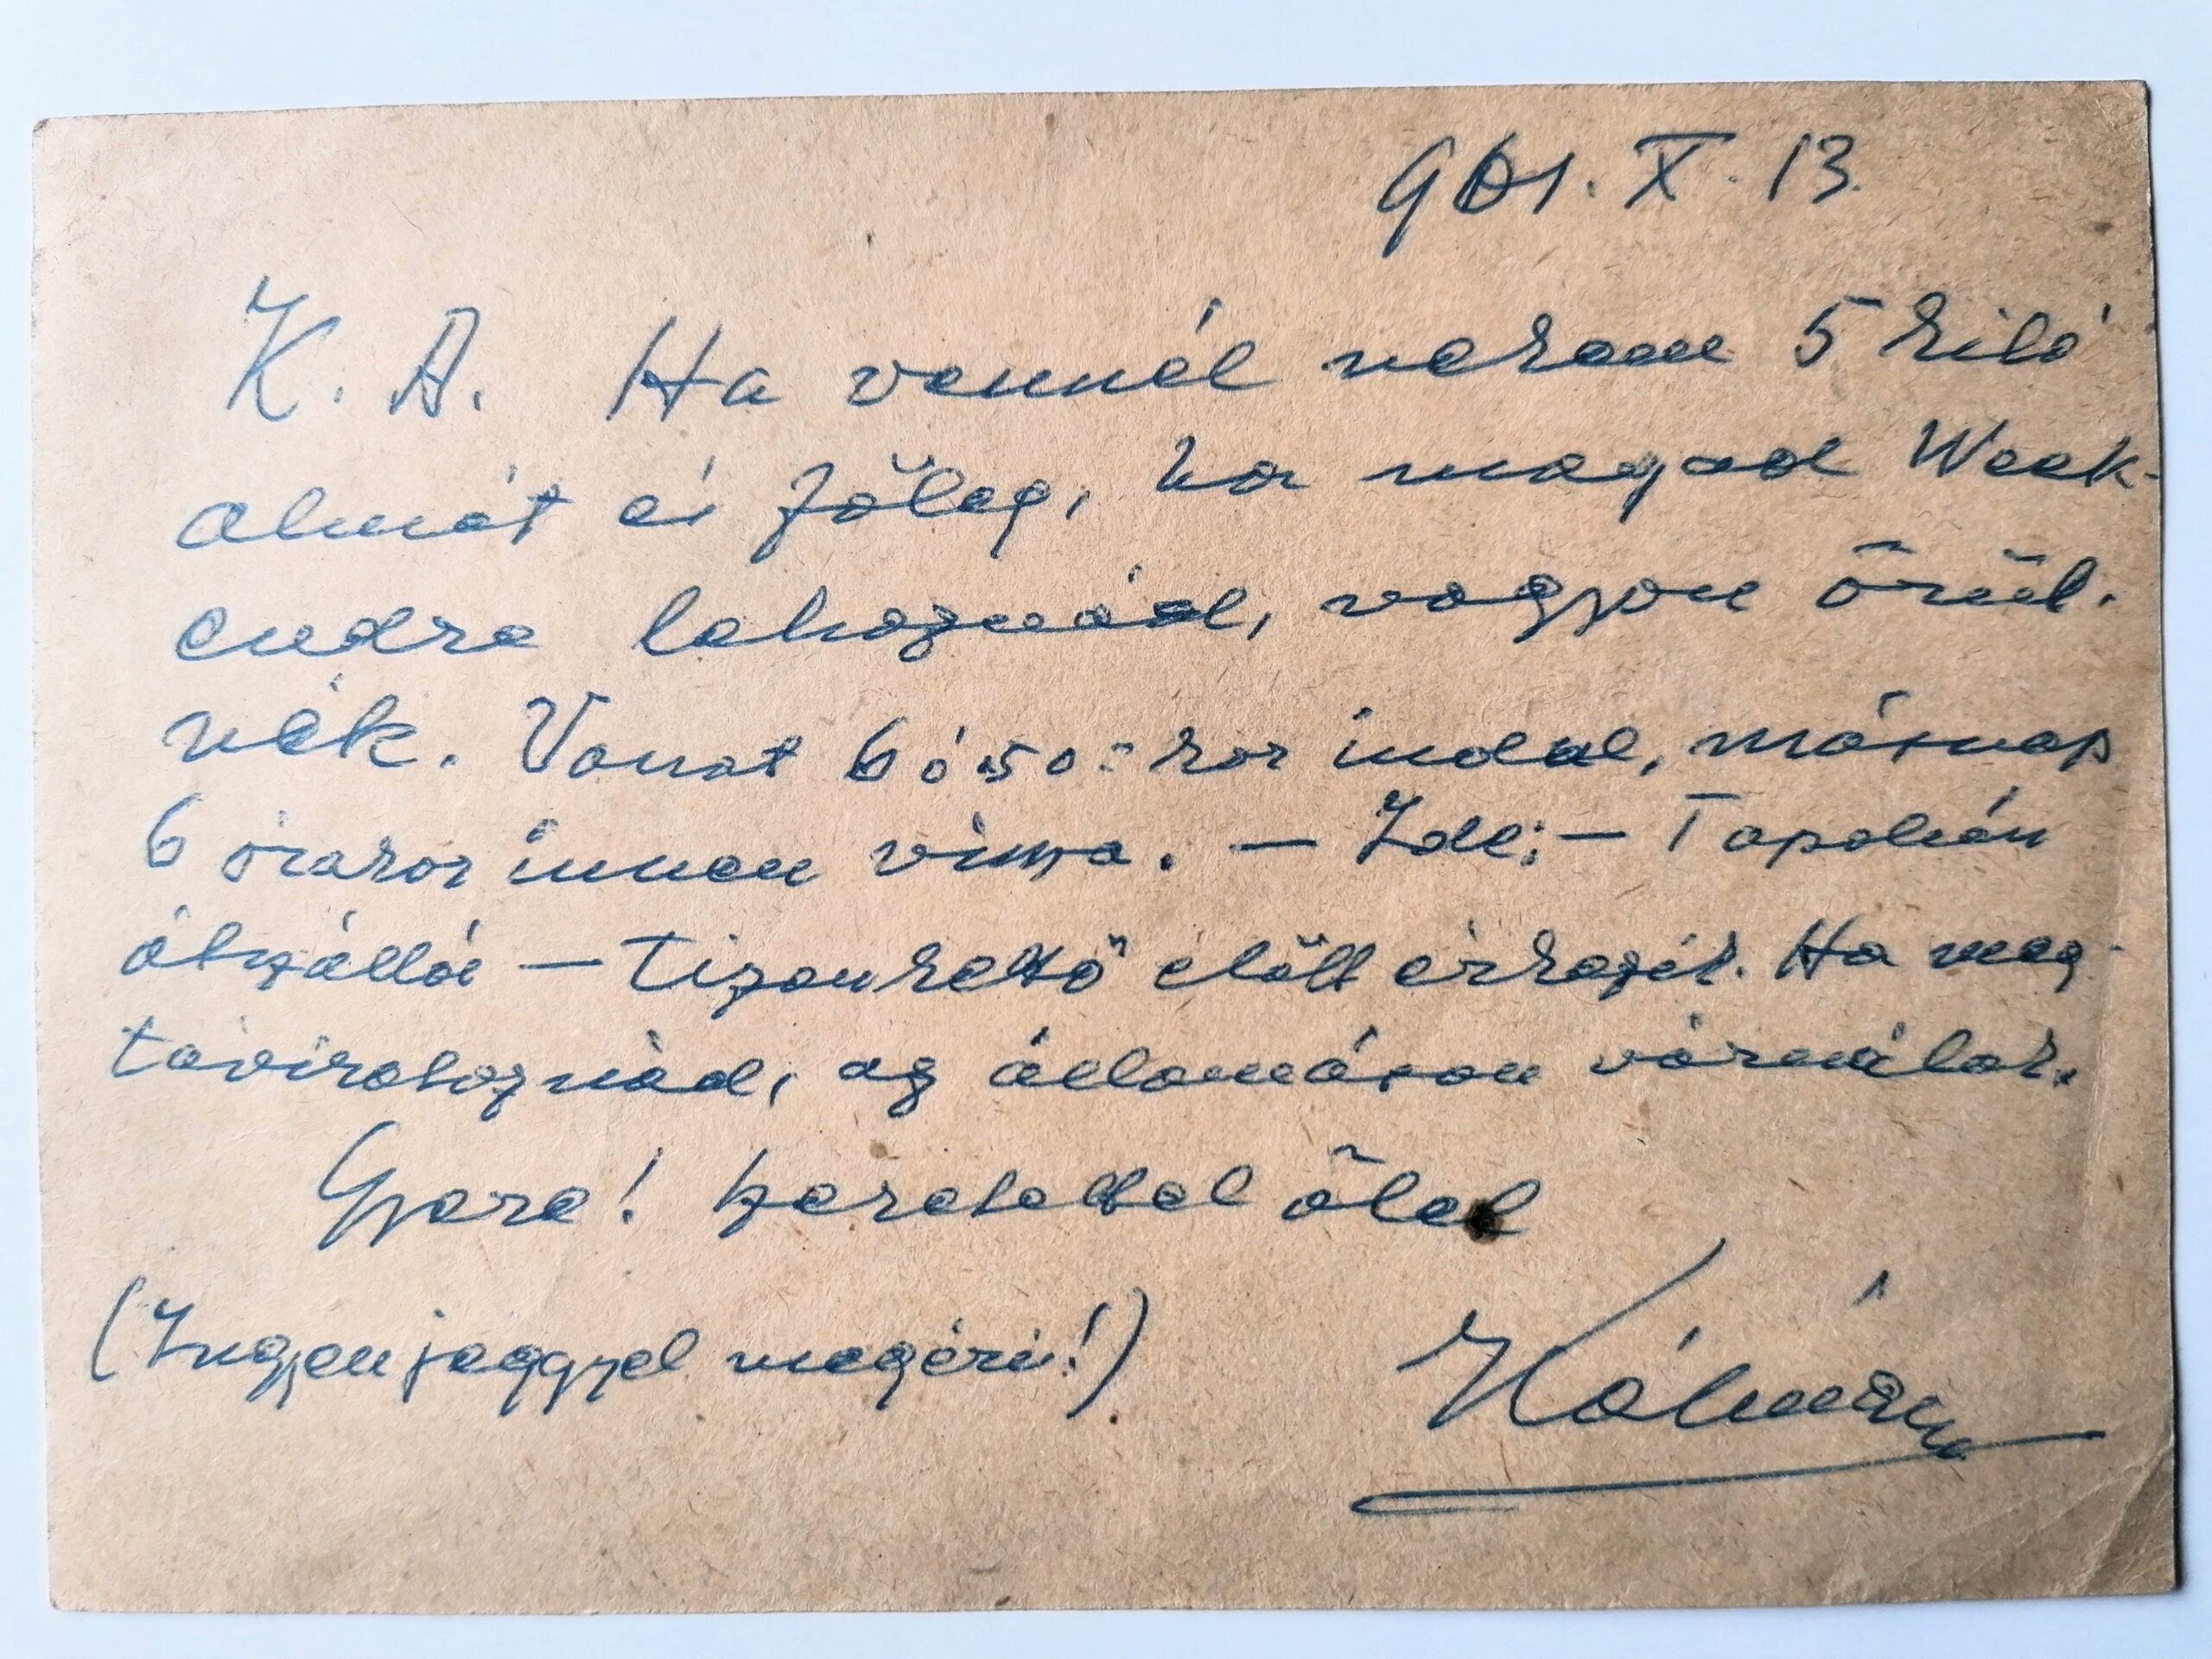 961. X. 13.
K. A. Ha vennél nekem 5 kiló
almát és főleg, ha magad Week-
endre lehoznád, nagyon örül-
nék. Vonat 6ó:50-kor indul, másnap
6 órakor innen vissza. — Ide: — Tapolcán
átszállás — tizenkettő előtt érkezik. Ha meg-
táviratoznád, az állomáson várnálak.
Gyere! Szeretettel ölel
(Ingyenjeggyel megéri!)
Kálmán